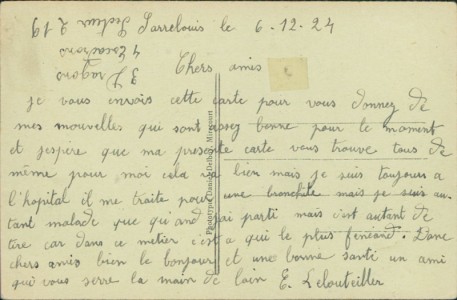 Sarrelouis le 6-12-24
Secteur 219
4 Escadrons
3 Dragons
Chers amis
je vous envois cette carte pour vous donnez de
mes nouvelles qui sont assez bonne pour le moment
et j'espère que ma presente carte vous trouve tous de
même pour moi cela va bien mais je suis toujours a
l'hopital il me traite pour une bronchite mais je suis au-
tant malade que qu'and j'ai parti mais c'est autant de
tire car dans ce metier c'est a qui le plus finéand. Donc
chers amis bien le bonjour et une bonne santi un ami
qui vous serre la main de loin E. Lelouteiller
Phototypie Daniel Delboy, Mirecourt